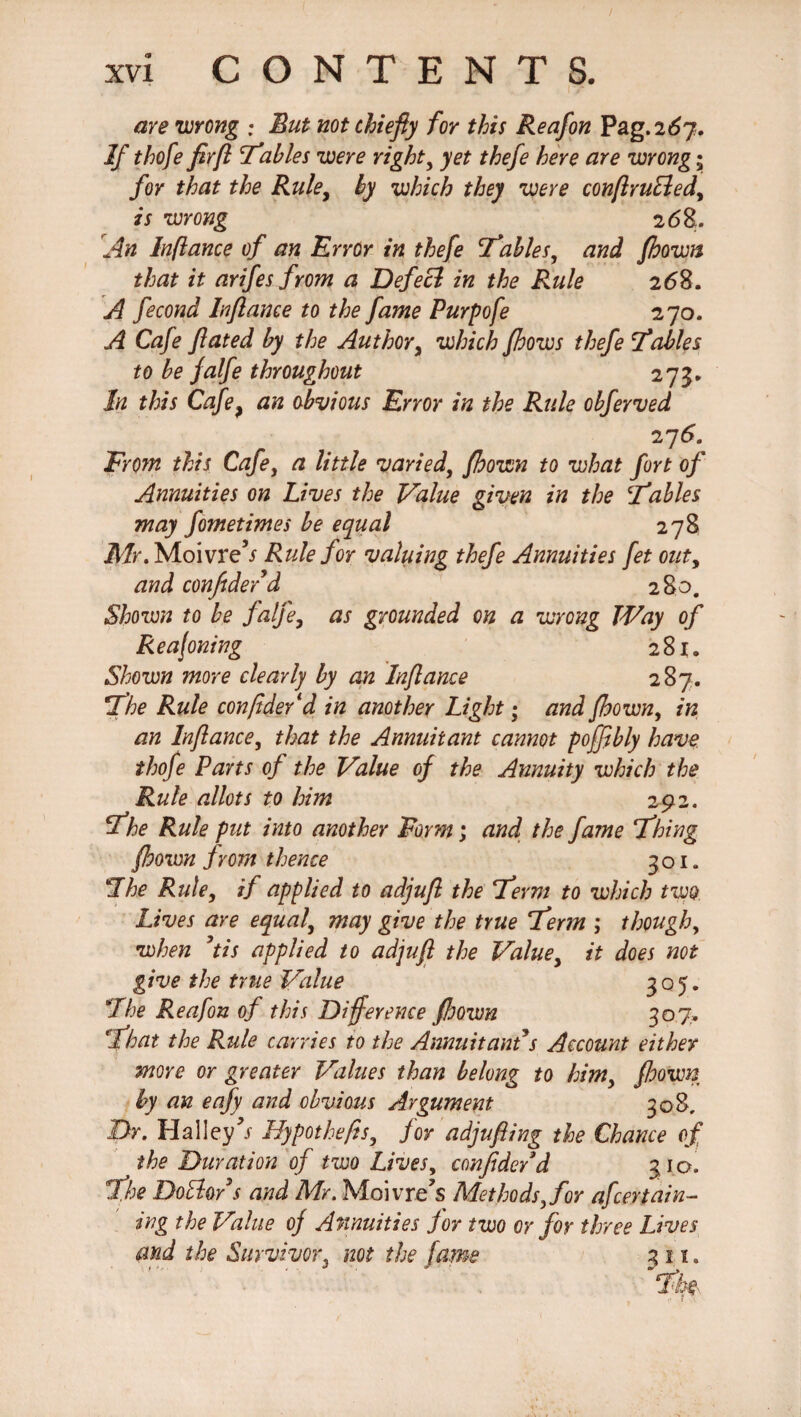 xvi CONTENTS.
are wrong : But not chiefly for this Reaſon Pag. 267.
If thoſe firſt Tables were right, yet theſe here are wrong;
for that the Rule, by which they were conſtructed,
is wrong 268.
An Inſtance of an Error in theſe Tables, and ſhown
that it ariſes from a Defect in the Rule 268.
A ſecond Inſtance to the ſame Purpoſe 270.
A Caſe ſtated by the Author, which ſhows theſe Tables
to be falſe throughout 273.
In this Caſe, an obvious Error in the Rule obſerved
276.
From this Caſe, a little varied, ſhown to what ſort of
Annuities on Lives the Value given in the Tables
may ſometimes be equal 278
Mr. Moivre's Rule for valuing theſe Annuities ſet out,
and conſider'd 280.
Shown to be falſe, as grounded on a wrong Way of
Reaſoning 281.
Shown more clearly by an Inſtance 287.
The Rule conſider'd in another Light; and ſhown, in
an Inſtance, that the Annuitant cannot poſſibly have
thoſe Parts of the Value of the Annuity which the
Rule allots to him 292.
The Rule put into another Form; and the ſame Thing
ſhown from thence 301.
The Rule, if applied to adjuſt the Term to which two
Lives are equal, may give the true Term ; though,
when 'tis applied to adjuſt the Value, it does not
give the true Value 305.
The Reaſon of this Difference ſhown 307.
That the Rule carries to the Annuitant's Account either
more or greater Values than belong to him, ſhown
by an eaſy and obvious Argument 308.
Dr. Halley's Hypotheſis, for adjuſting the Chance of
the Duration of two Lives, conſider'd 310.
The Doctor's and Mr. Moivre's Methods, for aſcertain-
ing the Value of Annuities for two or for three Lives
and the Survivor, not the ſame 311.
The